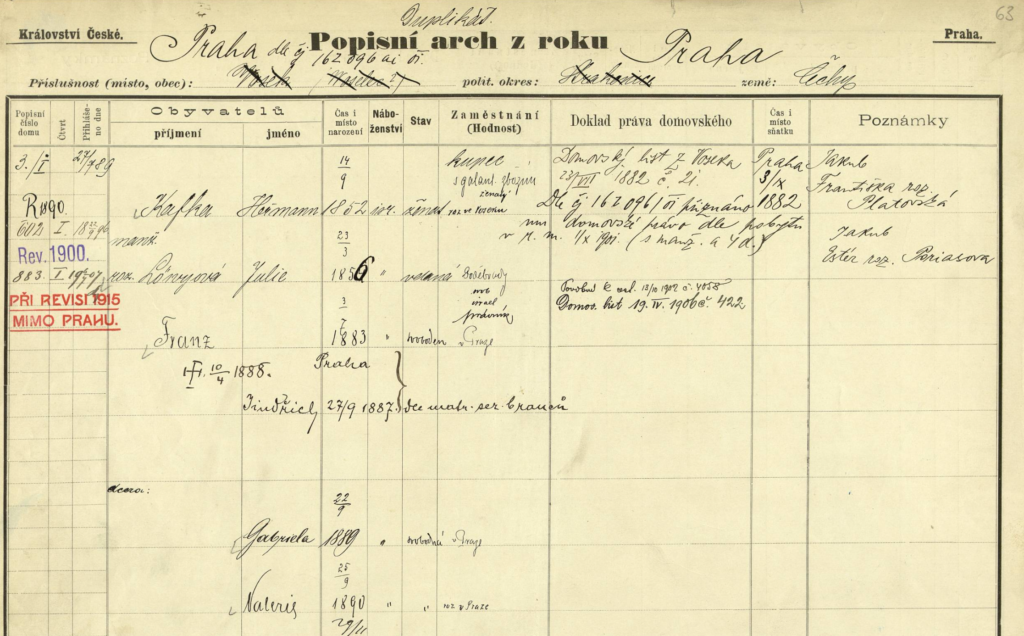 Duplikát.
63
Království České.
Popisní arch z roku
Praha.
Praha dle čj 162096 ai VI.
Praha
Příslušnost (místo, obec): Vosek
polit. okres:
země: Čechy
Popisní číslo domu
Čtvrt
Přihlášeno dne
Obyvatelů
příjmení
jméno
Čas i místo narození
Náboženství
Stav
Zaměstnání (Hodnost)
Doklad práva domovského
Čas i místo sňatku
Poznámky
3./I 27/7 89
14/9
kupec
Domovský list z Voseka
Praha
Jakub
s galant. zbožím
23/VII 1882 č. 21.
3/IX
Františka roz.
Platovská
R 1890.
Kafka Heřmann 1852 isr. ženat
ženatý
roz. ve Voseku
Dle čj 162096/VI přiznáno
1882
602 I.
mu domovské právo dle pobytu
manž.
23/3
v r. m. 1/X 1901. (s manž. a 4 d.)
Jakub
Ester roz. Poriasova
Rev. 1900.
883. I
roz. Löwyová Julie 1856 " vdaná Poděbrady
PŘI REVISI 1915
MIMO PRAHU.
3/7
Domov. list 19. IV. 1906 č. 422
Franz 1883 " svoboden v Praze
10/4 1888.
Praha
Jindřich 27/9 1887. dle matr. ser. branců
dcera:
22/9
Gabriela 1889 " svobodná v Praze
25/9
Valerie 1890 " " roz v Praze
29/